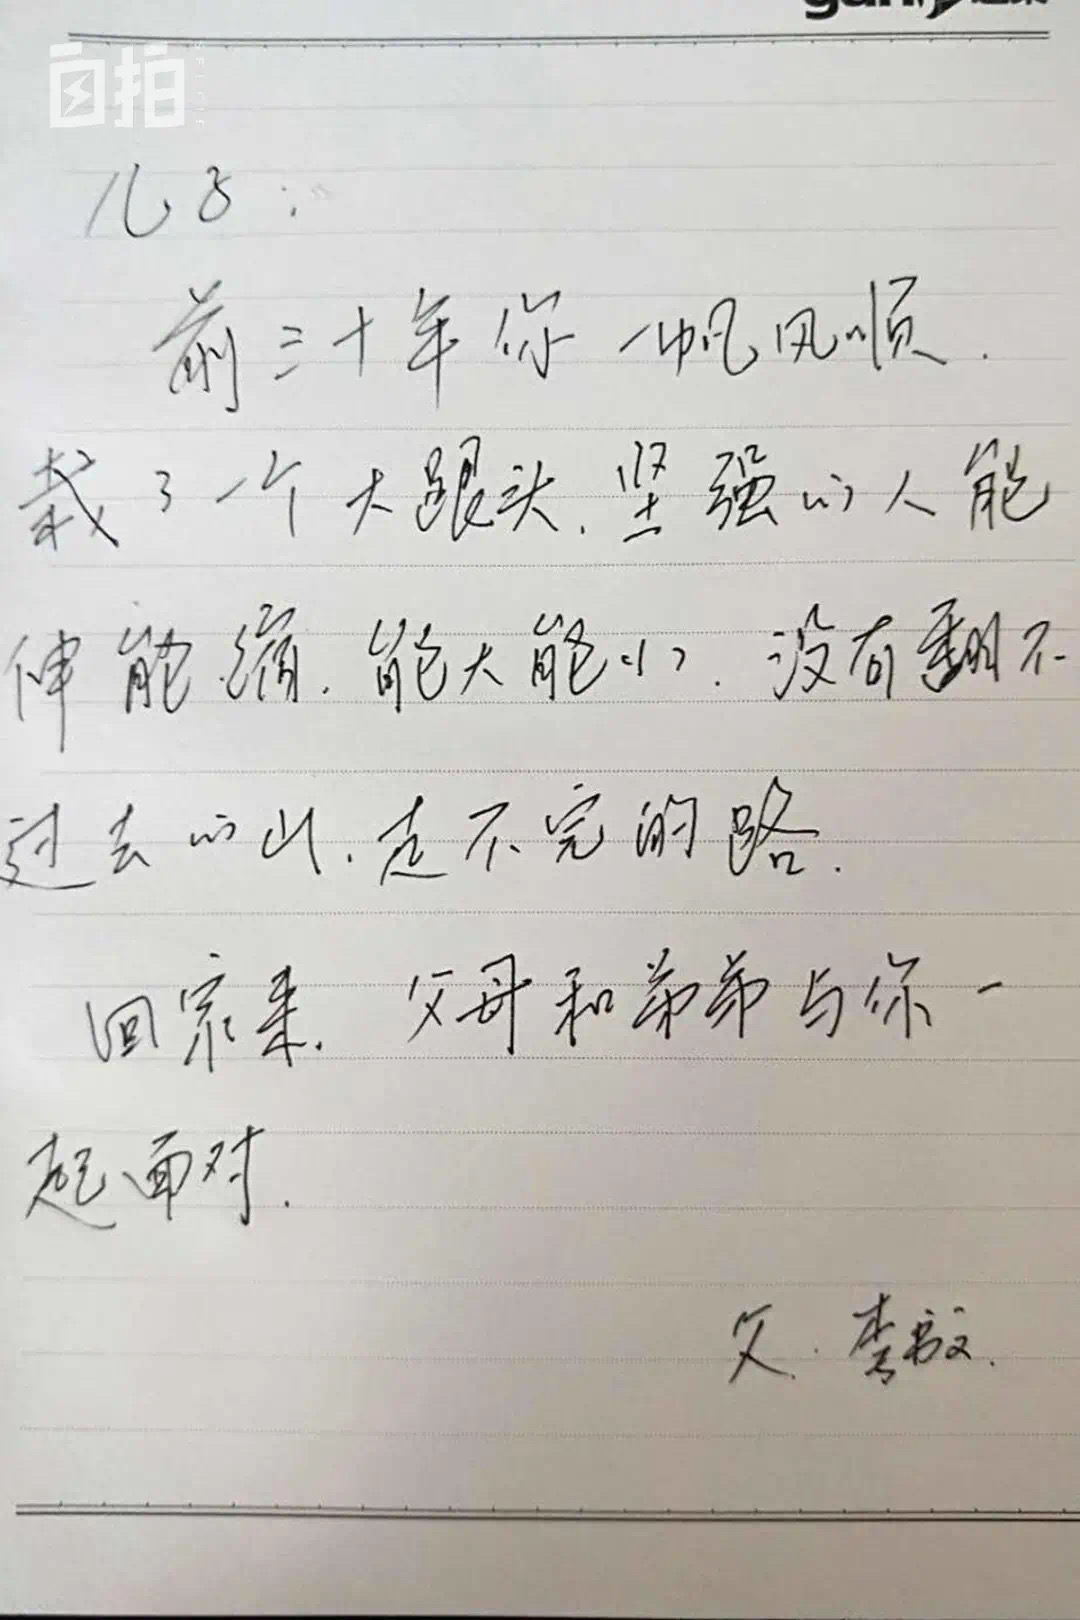 自拍
儿子:
前三十年你一帆风顺.
栽了一个大跟头.坚强的人能
伸能缩.能大能小.没有翻不
过去的山.走不完的路.
回家来.父母和弟弟与你一
起面对.
父.李敏.